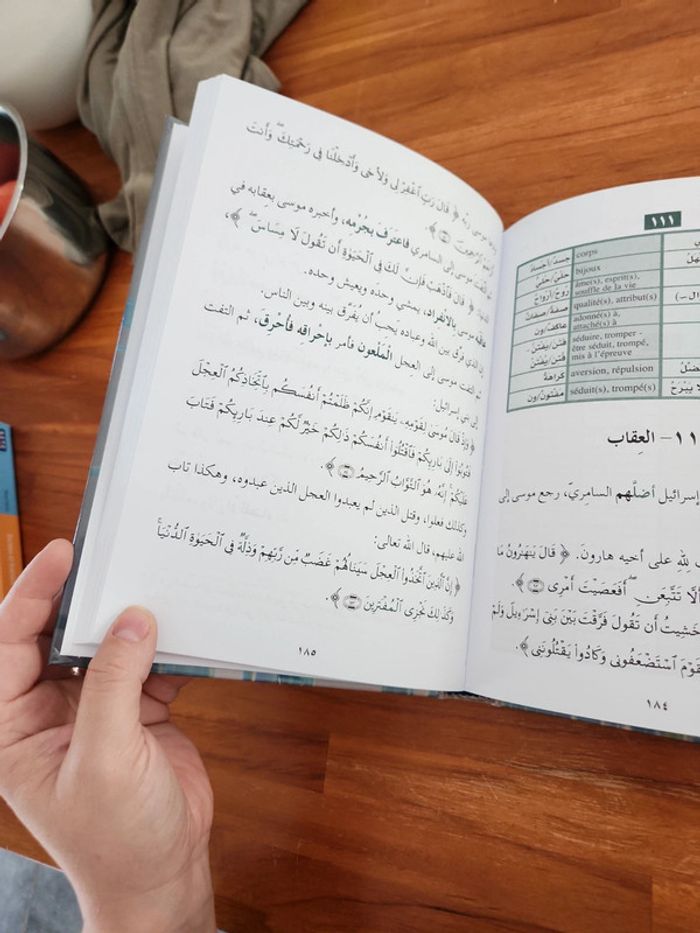 ١١١
جسد/أجسدة corps
حلي/حلي bijoux
روح/أرواح âme(s), esprit(s), souffle de la vie
صفة/صفات qualité(s), attribut(s)
عاكف/ون adonné(s) à, attaché(s) à
فتن/يفتن séduire, tromper - être séduit, trompé, mis à l'épreuve
كراهة aversion, répulsion
مفتون/ون séduit(s), trompé(s)
العِقاب
إسرائيل أضلَّهم السامريّ، رجع موسى إلى
لله على أخيه هارونَ. ﴿ قَالَ يَٰهَٰرُونُ مَا
أَلَّا تَتَّبِعَنِ أَفَعَصَيْتَ أَمْرِى ﴾.
خَشِيتُ أَن تَقُولَ فَرَّقْتَ بَيْنَ بَنِىٓ إِسْرَٰٓءِيلَ وَلَمْ
ٱلْقَوْمَ ٱسْتَضْعَفُونِى وَكَادُوا۟ يَقْتُلُونَنِى ﴾.
١٨٤
موسى ربّه ﴿ قَالَ رَبِّ ٱغْفِرْ لِى وَلِأَخِى وَأَدْخِلْنَا فِى رَحْمَتِكَ وَأَنتَ
أَرْحَمُ ٱلرَّٰحِمِينَ ﴾.
موسى إلى السامري فاعترَفَ بجُرْمِه، وأخبره موسى بعِقابه في
﴿ قَالَ فَٱذْهَبْ فَإِنَّ لَكَ فِى ٱلْحَيَوٰةِ أَن تَقُولَ لَا مِسَاسَ ﴾،
عاقبه موسى بالانفراد، يمشي وحده ويعيش وحده.
إن الذي فرَّق بين الله وعباده يجبُ أن يُفَرَّق بينه وبين الناس.
ثم التفت موسى إلى العجل الملعون فأمر بإحراقِه فأُحْرِقَ، ثم التفت
إلى بني إسرائيل:
﴿ وَإِذْ قَالَ مُوسَىٰ لِقَوْمِهِۦ يَٰقَوْمِ إِنَّكُمْ ظَلَمْتُمْ أَنفُسَكُم بِٱتِّخَاذِكُمُ ٱلْعِجْلَ
فَتُوبُوٓا۟ إِلَىٰ بَارِئِكُمْ فَٱقْتُلُوٓا۟ أَنفُسَكُمْ ذَٰلِكُمْ خَيْرٌ لَّكُمْ عِندَ بَارِئِكُمْ فَتَابَ
عَلَيْكُمْ إِنَّهُۥ هُوَ ٱلتَّوَّابُ ٱلرَّحِيمُ ﴾.
وكذلك فعلوا، وقتل الذين لم يعبدوا العجل الذين عبدوه، وهكذا تاب
الله عليهم، قال الله تعالى:
﴿ إِنَّ ٱلَّذِينَ ٱتَّخَذُوا۟ ٱلْعِجْلَ سَيَنَالُهُمْ غَضَبٌ مِّن رَّبِّهِمْ وَذِلَّةٌ فِى ٱلْحَيَوٰةِ ٱلدُّنْيَا
وَكَذَٰلِكَ نَجْزِى ٱلْمُفْتَرِينَ ﴾.
١٨٥